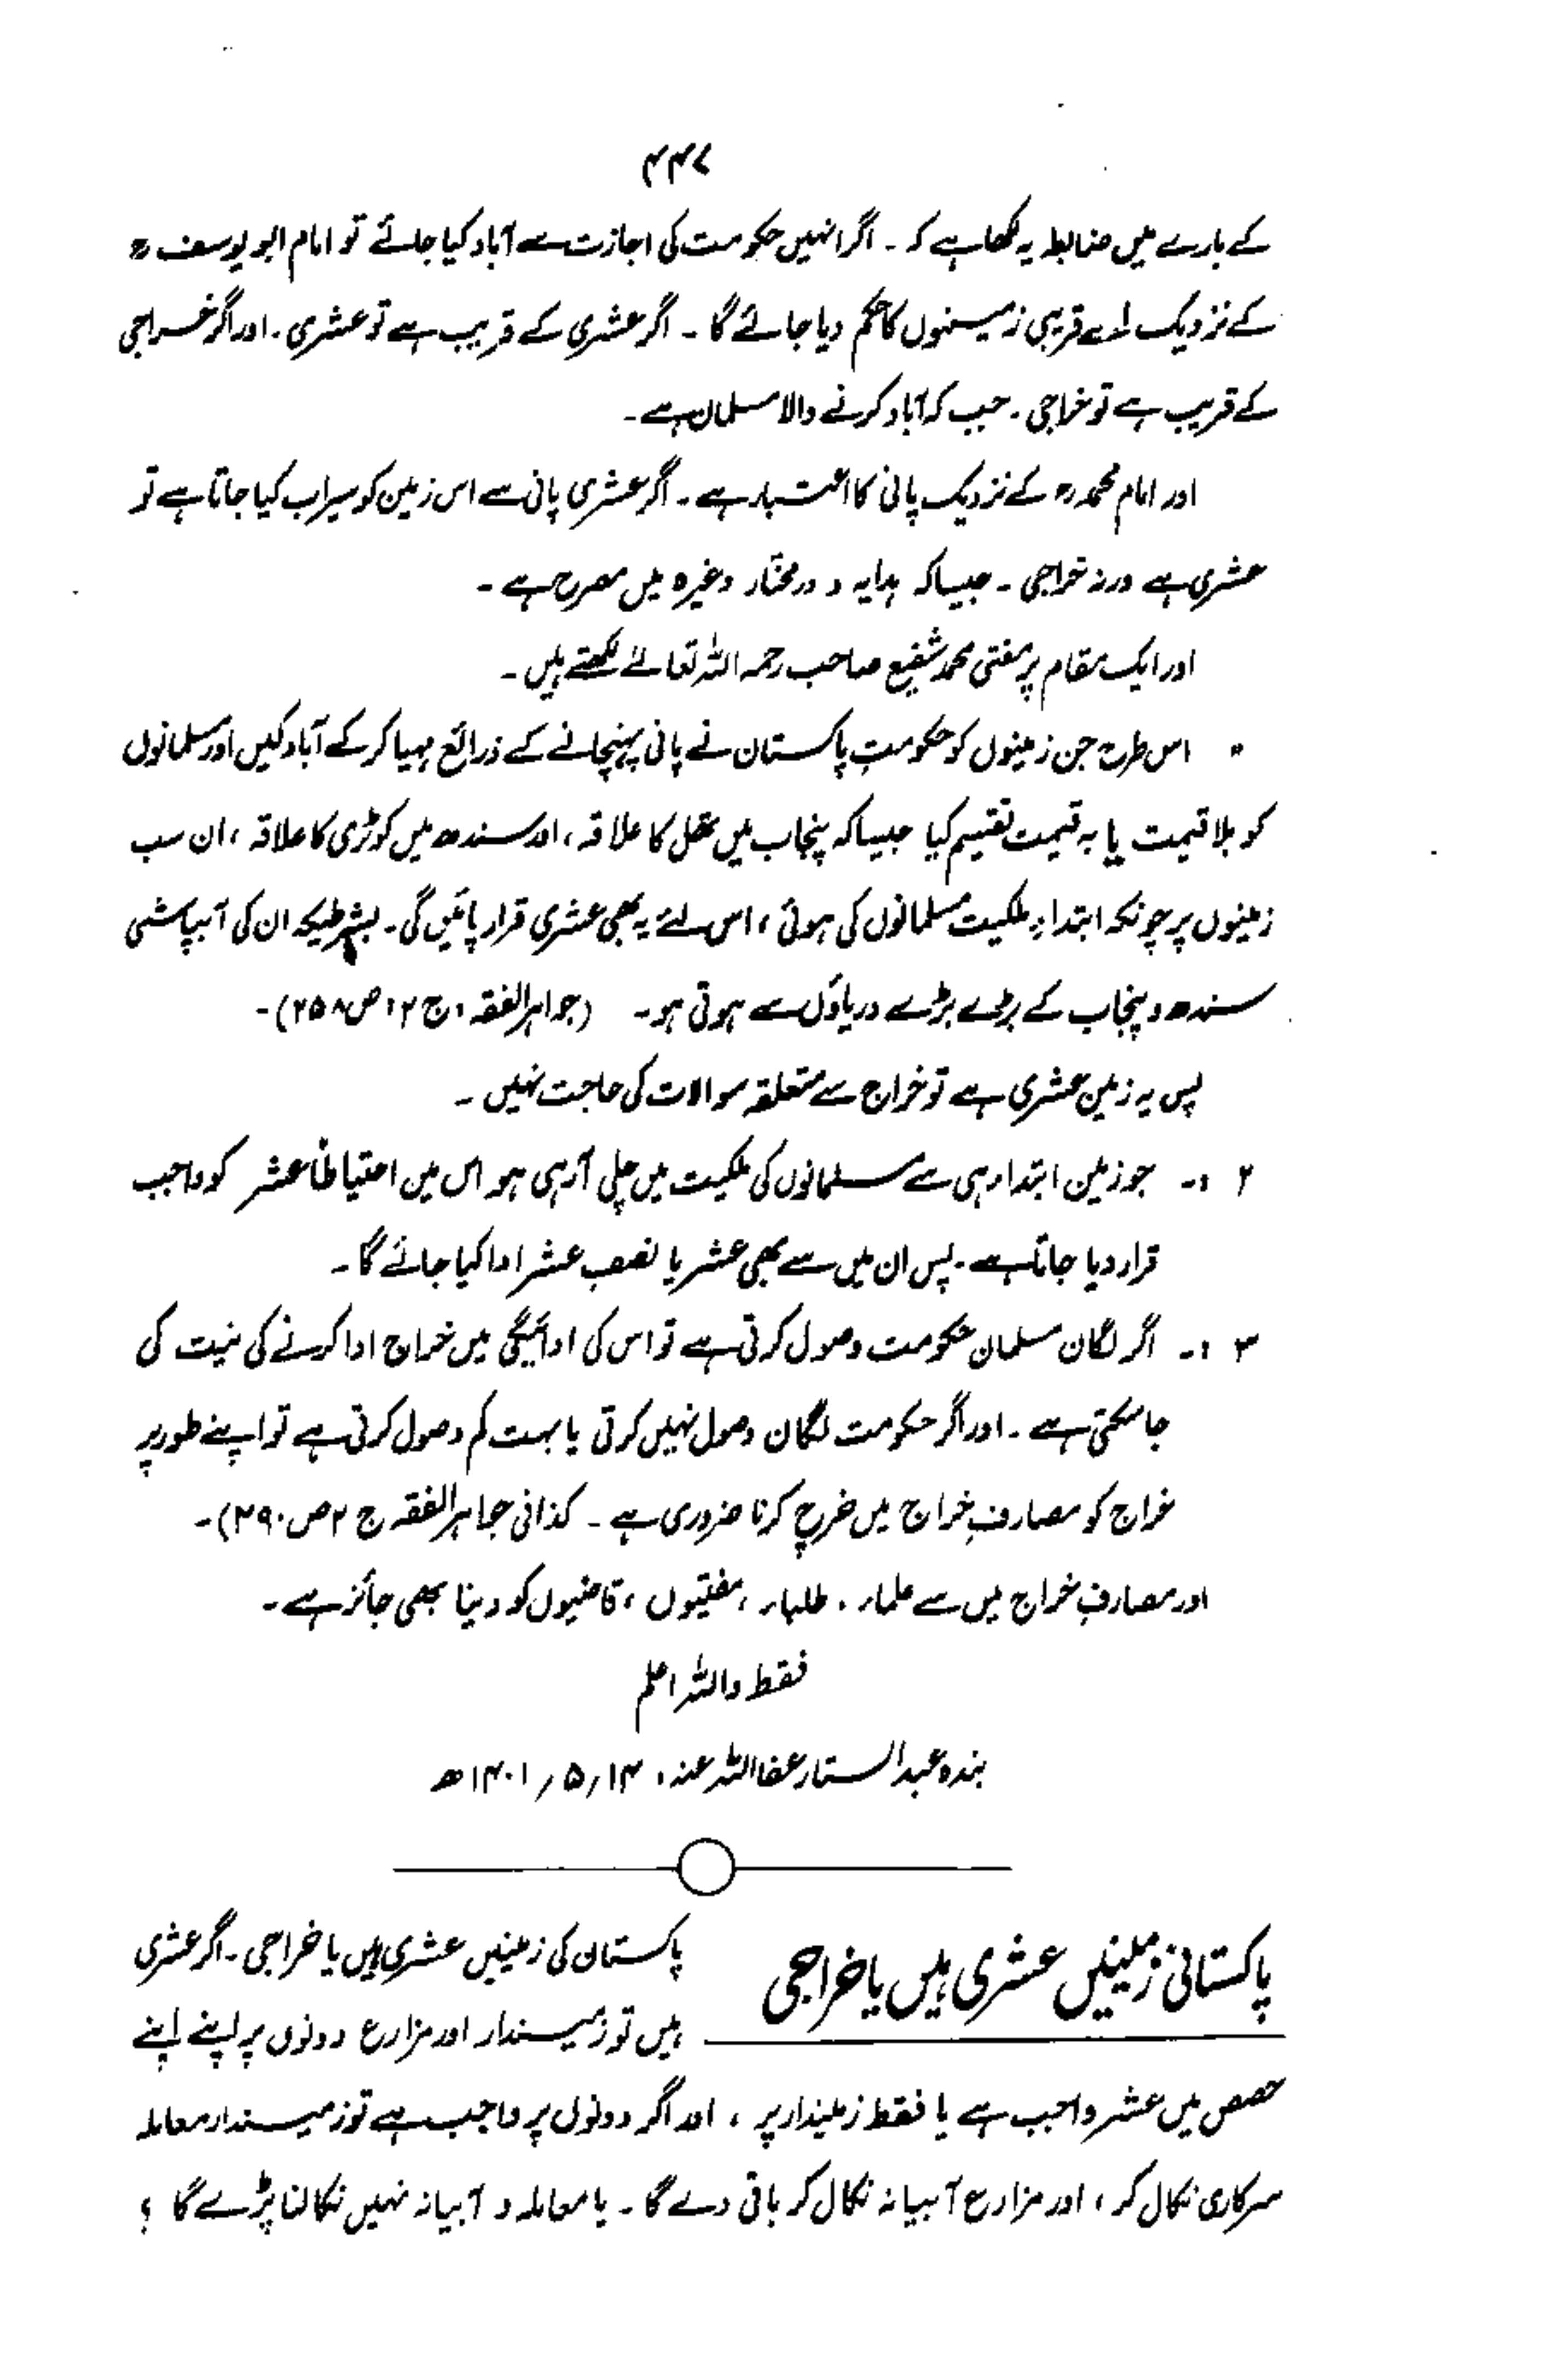 ۴۴۷
کے بارے میں ضابطہ یہ لکھا ہے کہ ۔ اگر انہیں حکومت کی اجازت سے آباد کیا جائے تو امام ابو یوسف رح
کے نزدیک اسے قریبی زمینوں کا حکم دیا جائے گا ۔ اگر عشری کے قریب ہے تو عشری ۔ اور اگر خراجی
کے قریب ہے تو خراجی ۔ جب کہ آباد کرنے والا مسلمان ہے ۔
اور امام محمد رح کے نزدیک پانی کا اعتبار ہے ۔ اگر عشری پانی سے اس زمین کو سیراب کیا جاتا ہے تو
عشری ہے ورنہ خراجی ۔ جیسا کہ ہدایہ و درمختار وغیرہ میں مصرح ہے ۔
اور ایک مقام پر مفتی محمد شفیع صاحب رحمہ اللہ تعالیٰ لکھتے ہیں ۔
" اس طرح جن زمینوں کو حکومتِ پاکستان نے پانی پہنچانے کے ذرائع مہیا کر کے آباد کیں اور مسلمانوں
کو بلا قیمت یا بہ قیمت تقسیم کیا جیسا کہ پنجاب میں تھل کا علاقہ ، اور سندھ میں کوٹری کا علاقہ ، ان سب
زمینوں پر چونکہ ابتداءِ ملکیت مسلمانوں کی ہوئی ، اس لئے یہ بھی عشری قرار پائیں گی ۔ بشرطیکہ ان کی آبپاشی
سندھ و پنجاب کے بڑے بڑے دریاؤں سے ہوتی ہو ۔ (جواہر الفقہ ، ج ۲ ، ص ۲۵۸) ۔
پس یہ زمین عشری ہے تو خراج سے متعلقہ سوالات کی حاجت نہیں ۔
۲ :۔ جو زمین ابتداء ہی سے مسلمانوں کی ملکیت میں چلی آرہی ہو اس میں احتیاطاً عشر کو واجب
قرار دیا جاتا ہے ۔ پس ان میں سے بھی عشر یا نصف عشر ادا کیا جائے گا ۔
۳ :۔ اگر لگان مسلمان حکومت وصول کرتی ہے تو اس کی ادائیگی میں خراج ادا کرنے کی نیت کی
جا سکتی ہے ۔ اور اگر حکومت لگان وصول نہیں کرتی یا بہت کم وصول کرتی ہے تو اپنے طور پر
خراج کو مصارفِ خراج میں خرچ کرنا ضروری ہے ۔ کذا فی جواہر الفقہ ج ۲ ص ۲۹۰) ۔
اور مصارفِ خراج میں سے علماء ، طلباء ، مفتیوں ، قاضیوں کو دینا بھی جائز ہے ۔
فقط واللہ اعلم
بندہ عبد الستار عفا اللہ عنہ ، ۱۴ ؍ ۵ ؍ ۱۴۰۱ھ
پاکستانی زمینیں عشری ہیں یا خراجی
پاکستان کی زمینیں عشری ہیں یا خراجی ۔ اگر عشری
ہیں تو زمیندار اور مزارع دونوں پر اپنے اپنے
حصص میں عشر واجب ہے یا فقط زمیندار پر ، اور اگر دونوں پر واجب ہے تو زمیندار معاملہ
سرکاری نکال کر ، اور مزارع آبیانہ نکال کر باقی دے گا ۔ یا معاملہ و آبیانہ نہیں نکالنا پڑے گا ؟